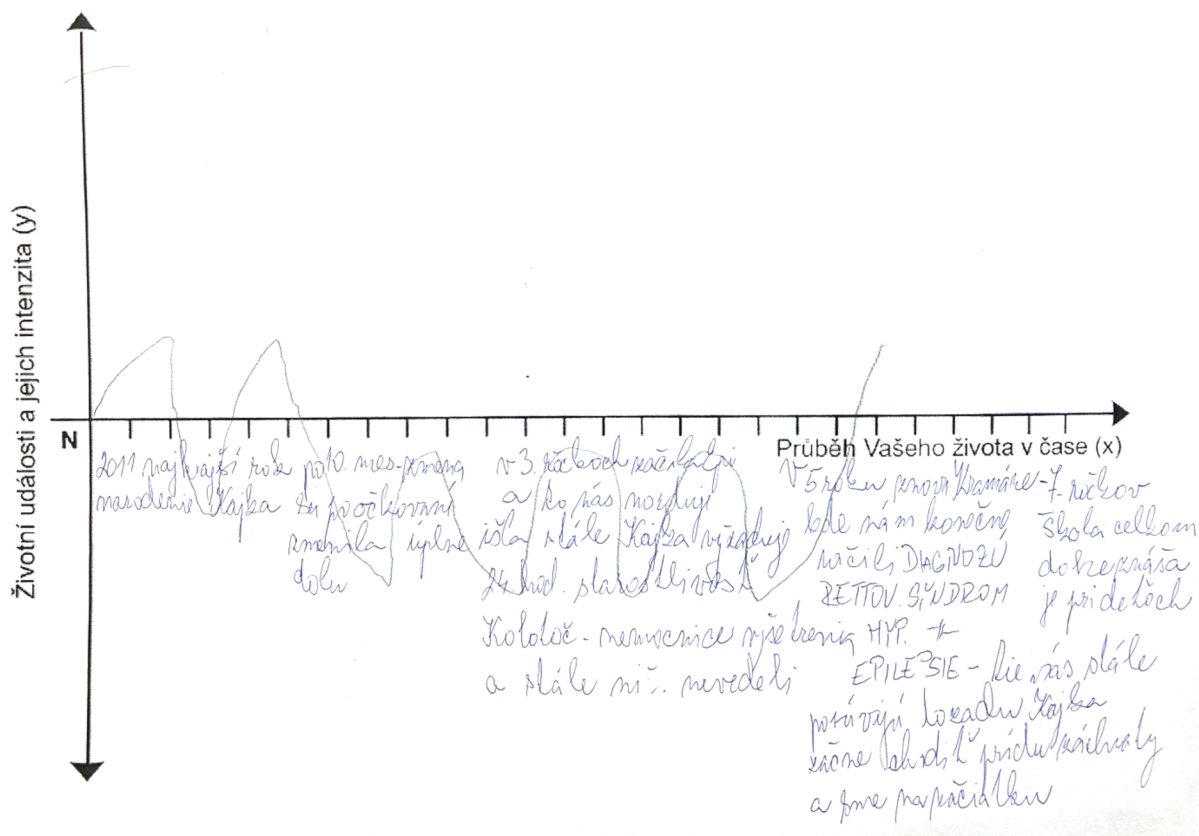 Životní události a jejich intenzita (y)
N
Průběh Vašeho života v čase (x)
2011 najkrajší rok
narodenie Kajka
po 10. mes. zmena
sa po očkovaní
zmenila úplne
dolu
v 3. rôčkoch začala
a to nás
išla stále Kajka vyžaduje
24 hod. starostlivosť
Kolotoč - nemocnice vyšetrenia
a stále nič. nevedeli
V 5 roku znova Kramáre
kde nám konečne
určili DIAGNOZU
RETTOV. SINDROM
HYP. +
EPILEPSIE - tie nás stále
dozadu Kajka
začne chodiť prídu záchvaty
a sme na začiatku
- 7. rôčkov
Škola celkom
dobre znáša
je pri deťoch